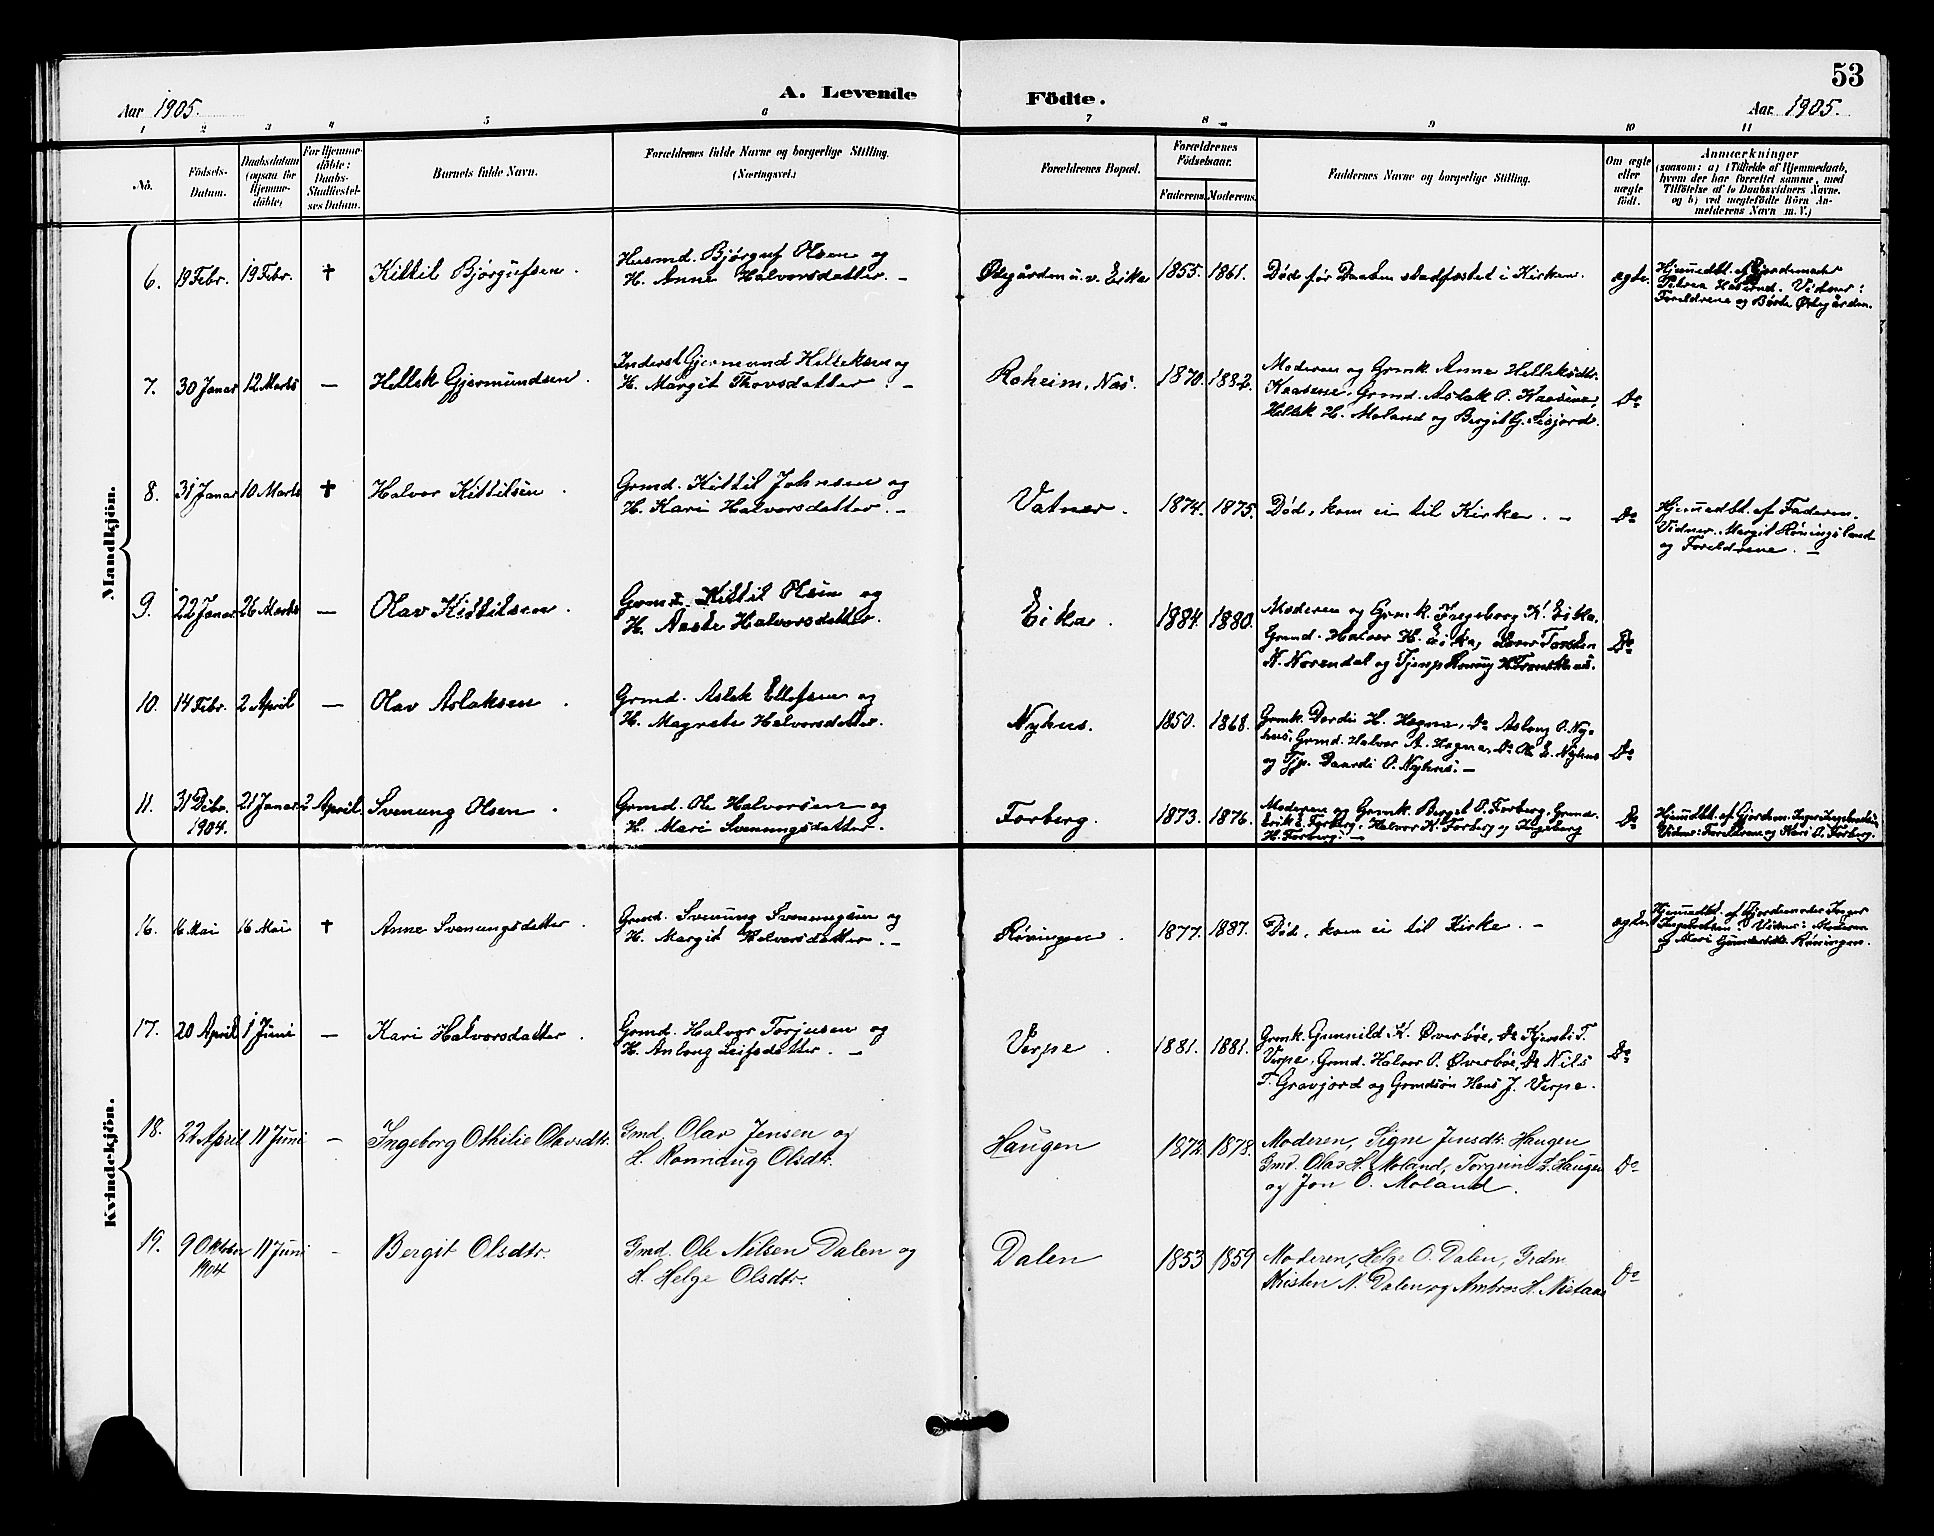 53
Aar 1905.
A. Levende Födte.
Aar 1905.
1 2 3 4 5 6 7 8 9 10 11
No.
Födsels-Datum.
Daabsdatum (ogsaa for Hjemme-döbte)
For Hjemme-döbte: Daabs-Stadfæstel-ses Datum.
Barnets fulde Navn.
Forældrenes fulde Navne og borgerlige Stilling. (Næringsvei.)
Forældrenes Bopæl.
Forældrenes Födselsaar.
Faderens. Moderens.
Faddernes Navne og borgerlige Stilling.
Om ægte eller uægte födt.
Anmærkninger
(saasom: a) i Tilfælde af Hjemmedaab,
hvem der har forrettet samme, med
Tilföielse af to Daabsvidners Navne.
og b) ved uegtefödte Börn An-
melderens Navn m. V.)
Mandkjön.
6. 19 Febr. 19 Febr. † Kittil Bjørgufsen.
Husmd. Bjørguf Olsen og
H. Anne Halvorsdatter. –
Ødegården u. v. Eika 1855. 1861.
Død før Daaben stadfæstet i Kirken.
ægte.
Hjemmedbt. af Gjordemoder
Vidner:
Foreldrene og Børte Ødegården.
7. 30 Januar 12 Marts – Hellek Gjermundsen.
Inderst Gjermund Helleksen og
H. Margit Thovsdatter –
Roheim, Nas. 1870. 1882.
Moderen og Grmk Anne Helleksdtr.
Kaasene, Grmd. Aslak O. Kaasene,
Hellek H. Moland og Bergit G. Lisjord.
Do
8. 31 Januar 10 Marts † Halvor Kittilsen.
Grmd. Kittil Johnsen og
H. Kari Halvorsdatter. –
Vatnar. 1874. 1875.
Død, kom ei til Kirke. –
Do
Hjemmedbt. af Faderen.
Vidner, Margit Røningsland
og Foreldrene. –
9. 22 Januar 26 Marts – Olav Kittilsen.
Grmd. Kittil Olsen og
H. Aaste Halvorsdatter.
Eika. 1884. 1880.
Moderen og Grmk. Ingeborg K. Eika,
Grmd. Halvor H. Eika, Torsten
N. Norendal og Tjenp. Rønnug
Do
10. 14 Febr. 2 April – Olav Aslaksen.
Grmd. Aslak Ellefsen og
H. Magrete Halvorsdatter.
Nyhus. 1850. 1868.
Grmk. Dordi H. Hegna, Do Aslaug O. Ny-
hus, Grmd. Halvor A. Hegna, Do Ole E. Nyhus
og Tjp. Daardi O. Nyhus. –
Do
11. 31 Debr. 1904. 21 Januar 2 April Svenung Olsen.
Grmd. Ole Halvorsen og
H. Mari Svenungsdatter.
Forberg. 1873. 1876.
Moderen og Grmk. Birgit O. Forberg. Grmd.
Erik E. Forberg, Halvor K. Forberg og Ingeborg
H. Forberg. –
Do
Hjemmedbt. af Gjordem. Inger
Vidner: Foreldrene og Kari O. Forberg.
Kvindekjön.
16. 16 Mai 16 Mai † Anne Svenungsdatter.
Grmd. Svenung Svenungsen og
H. Margit Halvorsdatter. –
Røningen. 1877. 1887.
Død, kom ei til Kirke. –
ægte.
Hjemmedbt. af Gjordemoder Inger
Vidner: Moderen
og Mari Røningen.
17. 20 April 1 Juni – Kari Halvorsdatter.
Grmd. Halvor Torjusen og
H. Anlaug Leifsdatter. –
Verpe. 1881. 1881.
Grmk. Gunnild K. Øverbøe, Do Kjersti T.
Verpe, Grmd. Halvor O. Øverbøe, Do Nils
T. Gravjord og Grmdsøn Hans J. Verpe.
Do
18. 22 April 11 Juni – Ingeborg Othilie Olavsdtr.
Gmd. Olav Jensen og
H. Ronnaug Olsdtr.
Haugen 1872 1878.
Moderen, Signe Jensdtr. Haugen
Gmd. Olav H. Moland, Torgrim L. Haugen
og Jon O. Moland.
Do
19. 9 Oktober 1904 11 Juni – Bergit Olsdtr.
Gmd. Ole Nilsen Dalen og
H. Helge Olsdtr.
Dalen 1853 1859
Moderen, Helge O. Dalen, Grdm
Kristen N. Dalen og Ambros H. Nistaas
Do